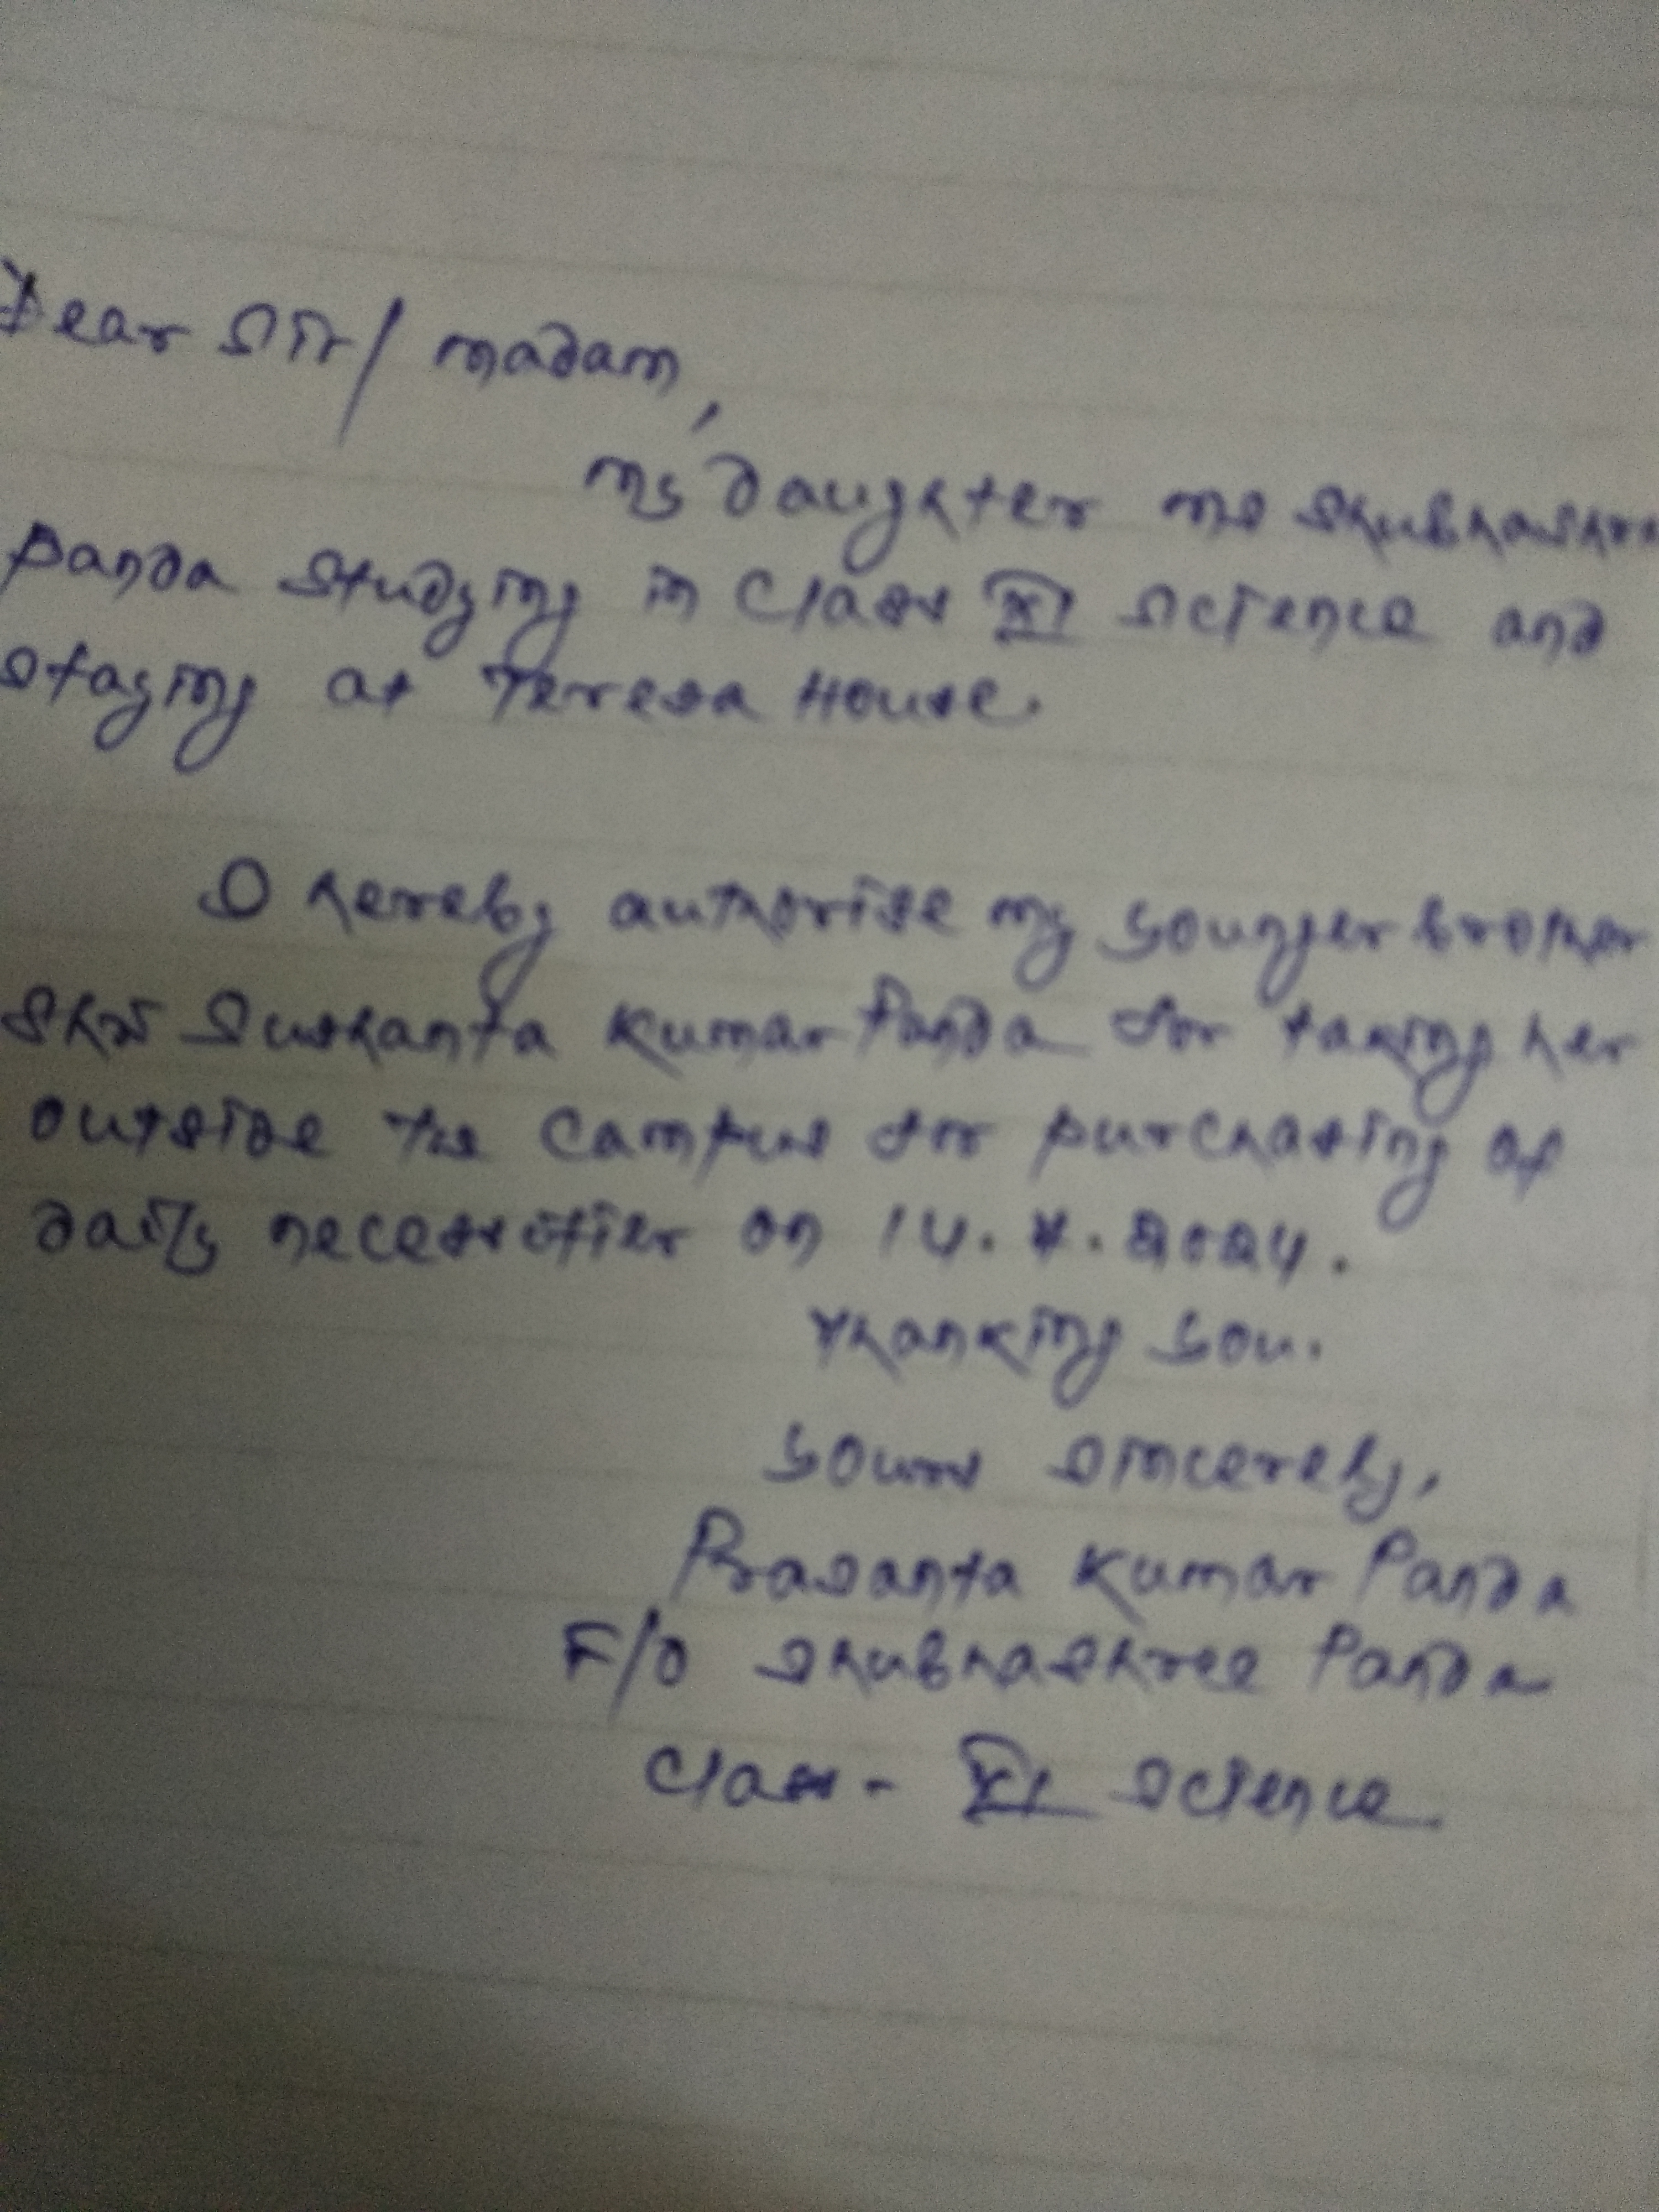 Dear Sir/ madam,
my daughter ms Shubhashre
Panda studying in Class XI Science and
staying at Teresa House.
I hereby authorise my younger brother
Shri Sushanta Kumar Panda for taking her
outside the Campus for purchasing of
daily necessities on
Thanking you.
yours sincerely,
Prasanta Kumar Panda
F/O Shubhashree Panda
Class - XI Science